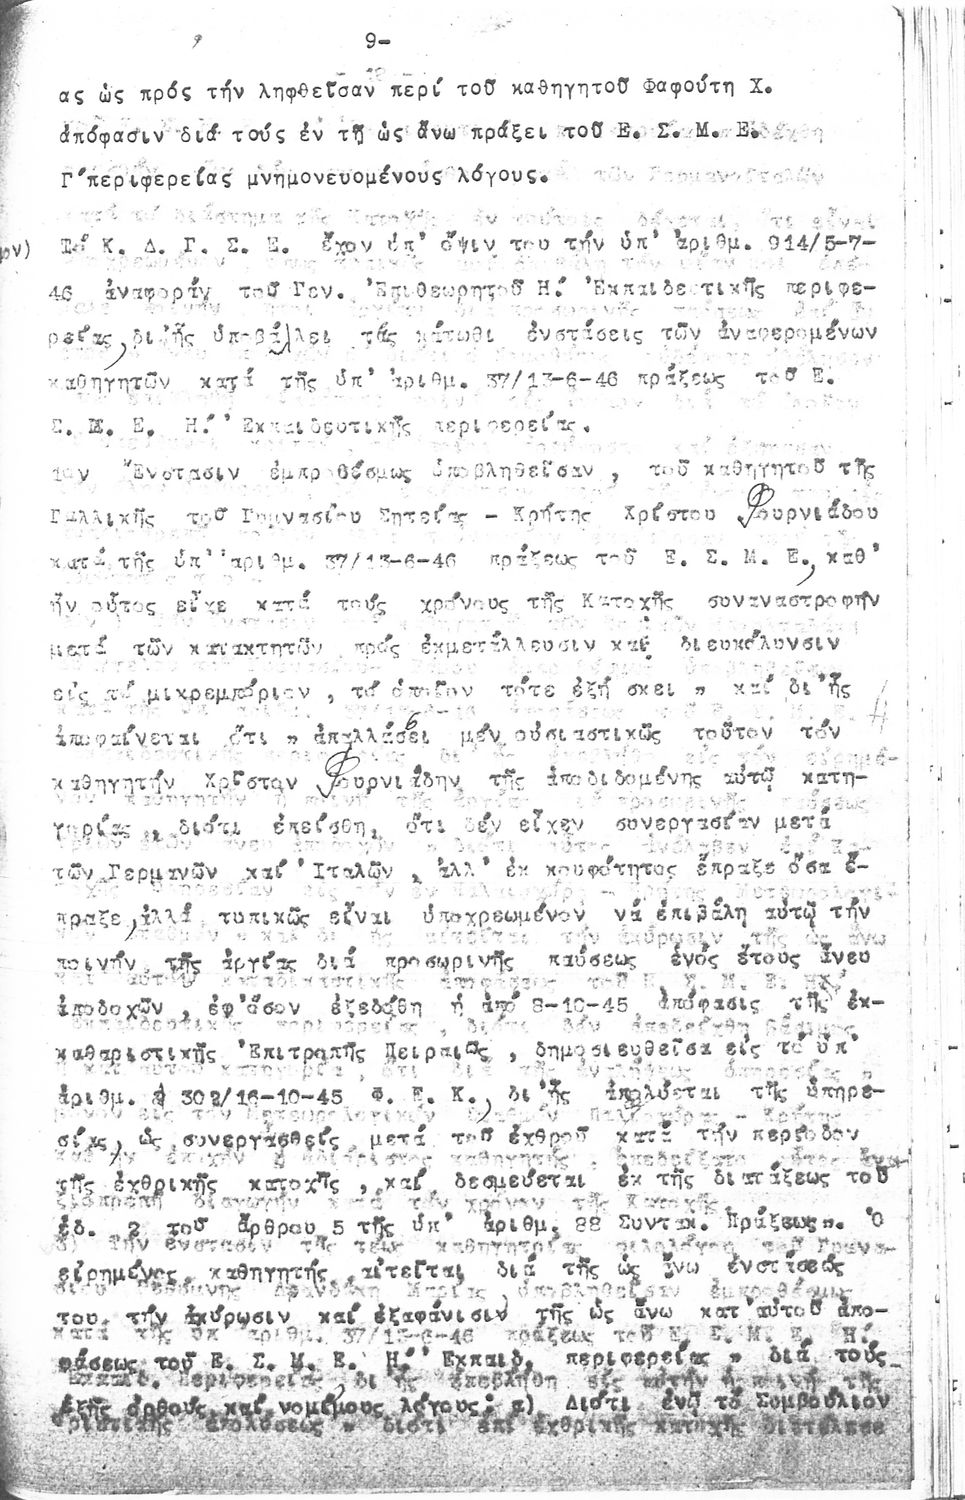 9-
ας ὡς πρός τήν ληφθεῖσαν περί τοῦ καθηγητοῦ Φαφούτη Χ.
ἀπόφασιν διά τούς ἐν τῇ ὡς ἄνω πράξει τοῦ Ε. Σ. Μ. Ε.
Γ'περιφερείας μνημονευομένους λόγους.
Τό Κ. Δ. Γ. Σ. Ε. ἔχον ὑπ' ὄψιν του τήν ὑπ' ἀριθμ. 914/5-7-
46 ἀναφοράν τοῦ Γεν. Ἐπιθεωρητοῦ Η.' Ἐκπαιδευτικῆς περιφε-
ρείας, δι'ἧς ὑποβάλλει τάς κάτωθι ἐνστάσεις τῶν ἀναφερομένων
καθηγητῶν κατά τῆς ὑπ' ἀριθμ. 37/13-6-46 πράξεως τοῦ Ε.
Σ. Μ. Ε. Η.' Ἐκπαιδευτικῆς περιφερείας.
1ον Ἔνστασιν ἐμπροθέσμως ὑποβληθεῖσαν, τοῦ καθηγητοῦ τῆς
Γαλλικῆς τοῦ Γυμνασίου Σητείας - Κρήτης Χρίστου Φουρνιάδου
κατά τῆς ὑπ' ἀριθμ. 37/13-6-46 πράξεως τοῦ Ε. Σ. Μ. Ε., καθ'
ἥν οὗτος εἶχε κατά τούς χρόνους τῆς Κατοχῆς συναναστροφήν
μετά τῶν κατακτητῶν πρός ἐκμετάλλευσιν καί διευκόλυνσιν
εἰς τό μικρεμπόριον, τό ὁποῖον τότε ἐξήσκει " καί δι'ἧς
ἀποφαίνεται ὅτι " ἀπαλλάσσει μέν οὐσιαστικῶς τοῦτον τόν
καθηγητήν Χρῖστον Φουρνιάδην τῆς ἀποδιδομένης αὐτῷ κατη-
γορίας, διότι ἐπείσθη, ὅτι δέν εἶχεν συνεργασίαν μετά
τῶν Γερμανῶν καί Ἰταλῶν, ἀλλ' ἐκ κουφότητος ἔπραξε ὅσα ἔ-
πραξε, ἀλλά τυπικῶς εἶναι ὑποχρεωμένον νά ἐπιβάλη αὐτῷ τήν
ποινήν τῆς ἀργίας διά προσωρινῆς παύσεως ἑνός ἔτους ἄνευ
ἀποδοχῶν, ἐφ'ὅσον ἐξεδόθη ἡ ἀπό 8-10-45 ἀπόφασις τῆς ἐκ-
καθαριστικῆς Ἐπιτροπῆς Πειραιῶς, δημοσιευθεῖσα εἰς τό ὑπ'
ἀριθμ. 302/16-10-45 Φ. Ε. Κ., δι'ἧς ἀπολύεται τῆς ὑπηρε-
σίας, ὡς συνεργάσθείς μετά τοῦ ἐχθροῦ κατά τήν περίοδον
τῆς ἐχθρικῆς κατοχῆς, καί δεσμεύεται ἐκ τῆς διατάξεως τοῦ
ἐδ. 2 τοῦ ἄρθρου 5 τῆς ὑπ' ἀριθμ. 88 Συντακ. Πράξεως". Ὁ
εἰρημένος καθηγητής αἰτεῖται διά τῆς ὡς ἄνω ἐνστάσεώς
του τήν ἀκύρωσιν καί ἐξαφάνισιν τῆς ὡς ἄνω κατ'αὐτοῦ ἀπο-
φάσεως τοῦ Ε. Σ. Μ. Ε. Η.' Ἐκπαιδ. περιφερείας " διά τούς
ἑξῆς ὀρθούς καί νομίμους λόγους: α) Διότι ἐνῷ τό Συμβούλιον